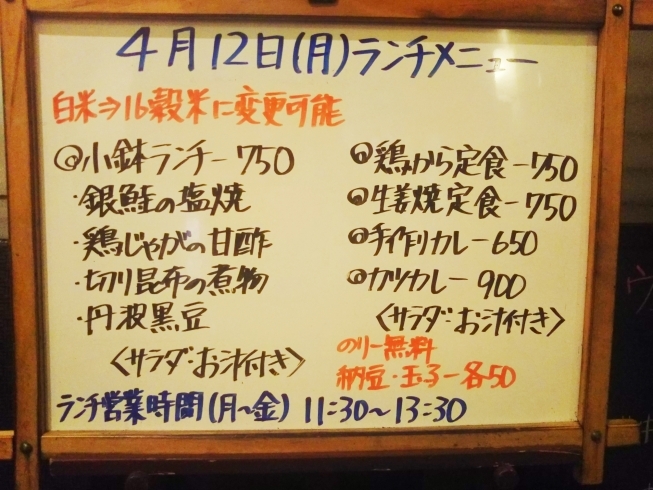 4月12日(月)ランチメニュー
白米⇒16穀米に変更可能
◎小鉢ランチー750
・銀鮭の塩焼
・鶏じゃがの甘酢
・切り昆布の煮物
・丹波黒豆
〈サラダ・お汁付き〉
◎鶏から定食ー750
◎生姜焼定食ー750
◎手作りカレー650
◎カツカレー900
〈サラダ・お汁付き〉
のりー無料
納豆・玉子ー各50
ランチ営業時間(月〜金) 11:30〜13:30